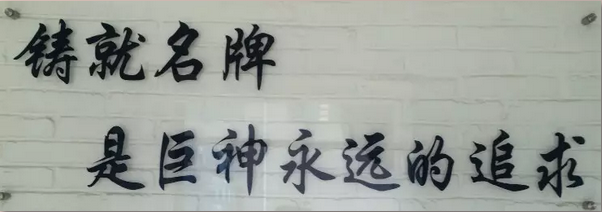 铸就名牌
是巨神永远的追求